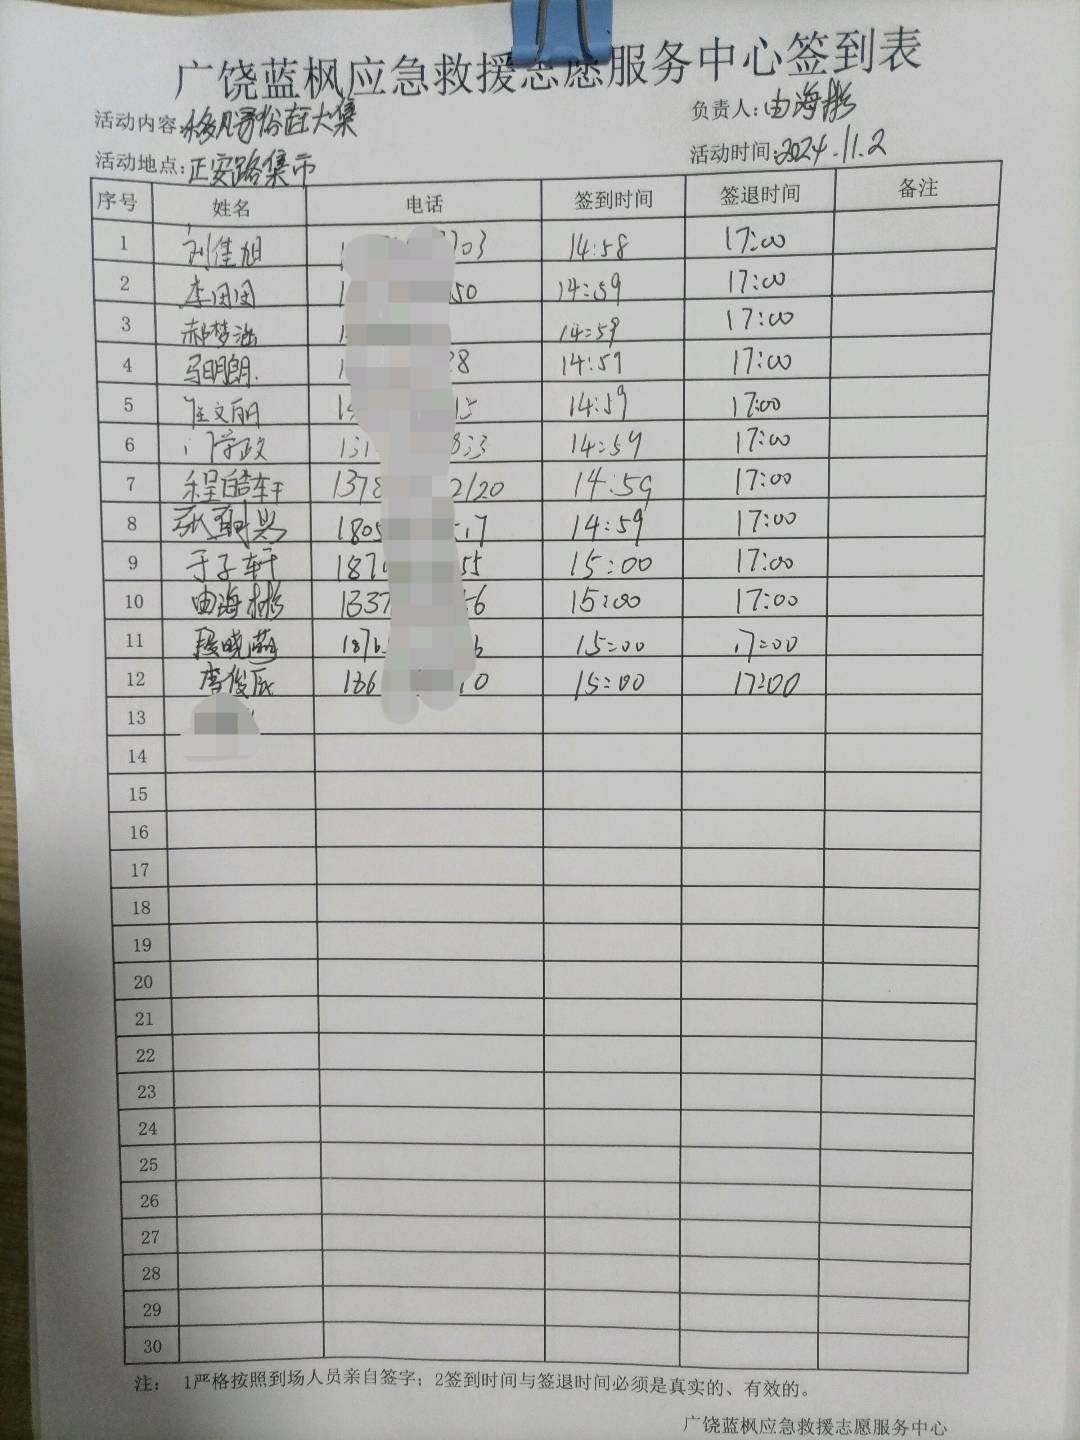 广饶蓝枫应急救援志愿服务中心签到表
活动内容:移风易俗在大集 负责人:由海彬
活动地点:正安路集市 活动时间:2024.11.2
序号 姓名 电话 签到时间 签退时间 备注
1 刘佳旭 03 14:58 17:00
2 李田田 50 14:59 17:00
3 郝梦涵 14:59 17:00
4 马明朗. 28 14:59 17:00
5 任文丽 15 14:59 17:00
6 131 833 14:59 17:00
7 程皓轩 1378 2120 14:59 17:00
8 1805 17 14:59 17:00
9 于子轩 187 55 15:00 17:00
10 由海彬 1337 6 15:00 17:00
11 段晓萌 187 6 15:00 17:00
12 李俊辰 186 10 15:00 17:00
13
14
15
16
17
18
19
20
21
22
23
24
25
26
27
28
29
30
注: 1严格按照到场人员亲自签字;2签到时间与签退时间必须是真实的、有效的。
广饶蓝枫应急救援志愿服务中心